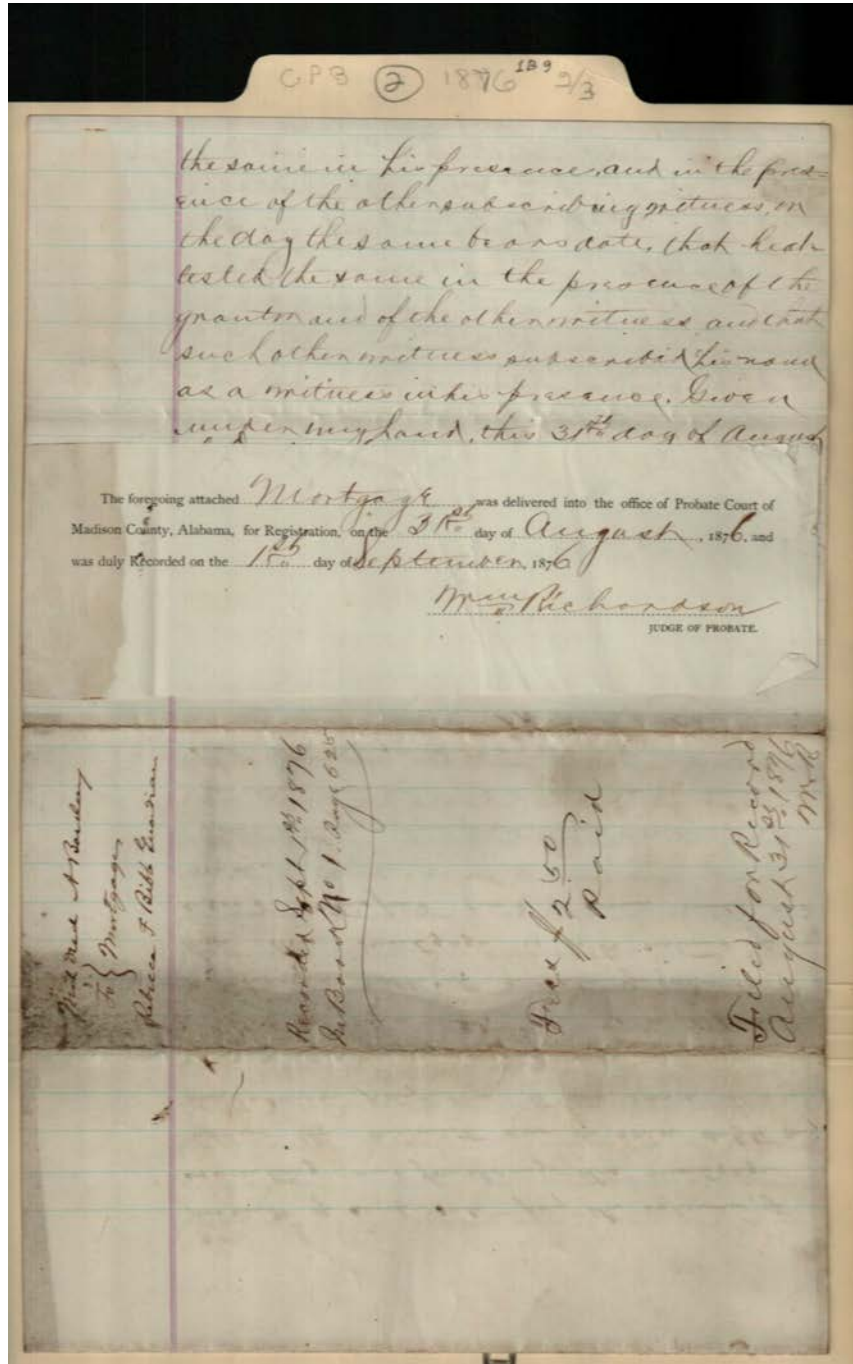 GPB 2 1876 1B9 2/3
the same in his presence, and in the pres=
ence of the other subscribing witness, on
the day the same bears date, that he at-
tested the same in the presence of the
grantor and of the other witness and that
such other witness subscribed his name
as a witness in his presence. Given
under my hand, this 31st day of August
The foregoing attached Mortgage was delivered into the office of Probate Court of
Madison County, Alabama, for Registration, on the 31st day of August, 1876, and
was duly Recorded on the 1st day of September, 1876
Wm Richardson
JUDGE OF PROBATE.
A
To } Mortgage
Rebecca F Bibb Guardian
Recorded Sept 1st 1876
In Book No 1. Page 625
Fees $2.50
Paid
Filed for Record
August 31st 1876
WR